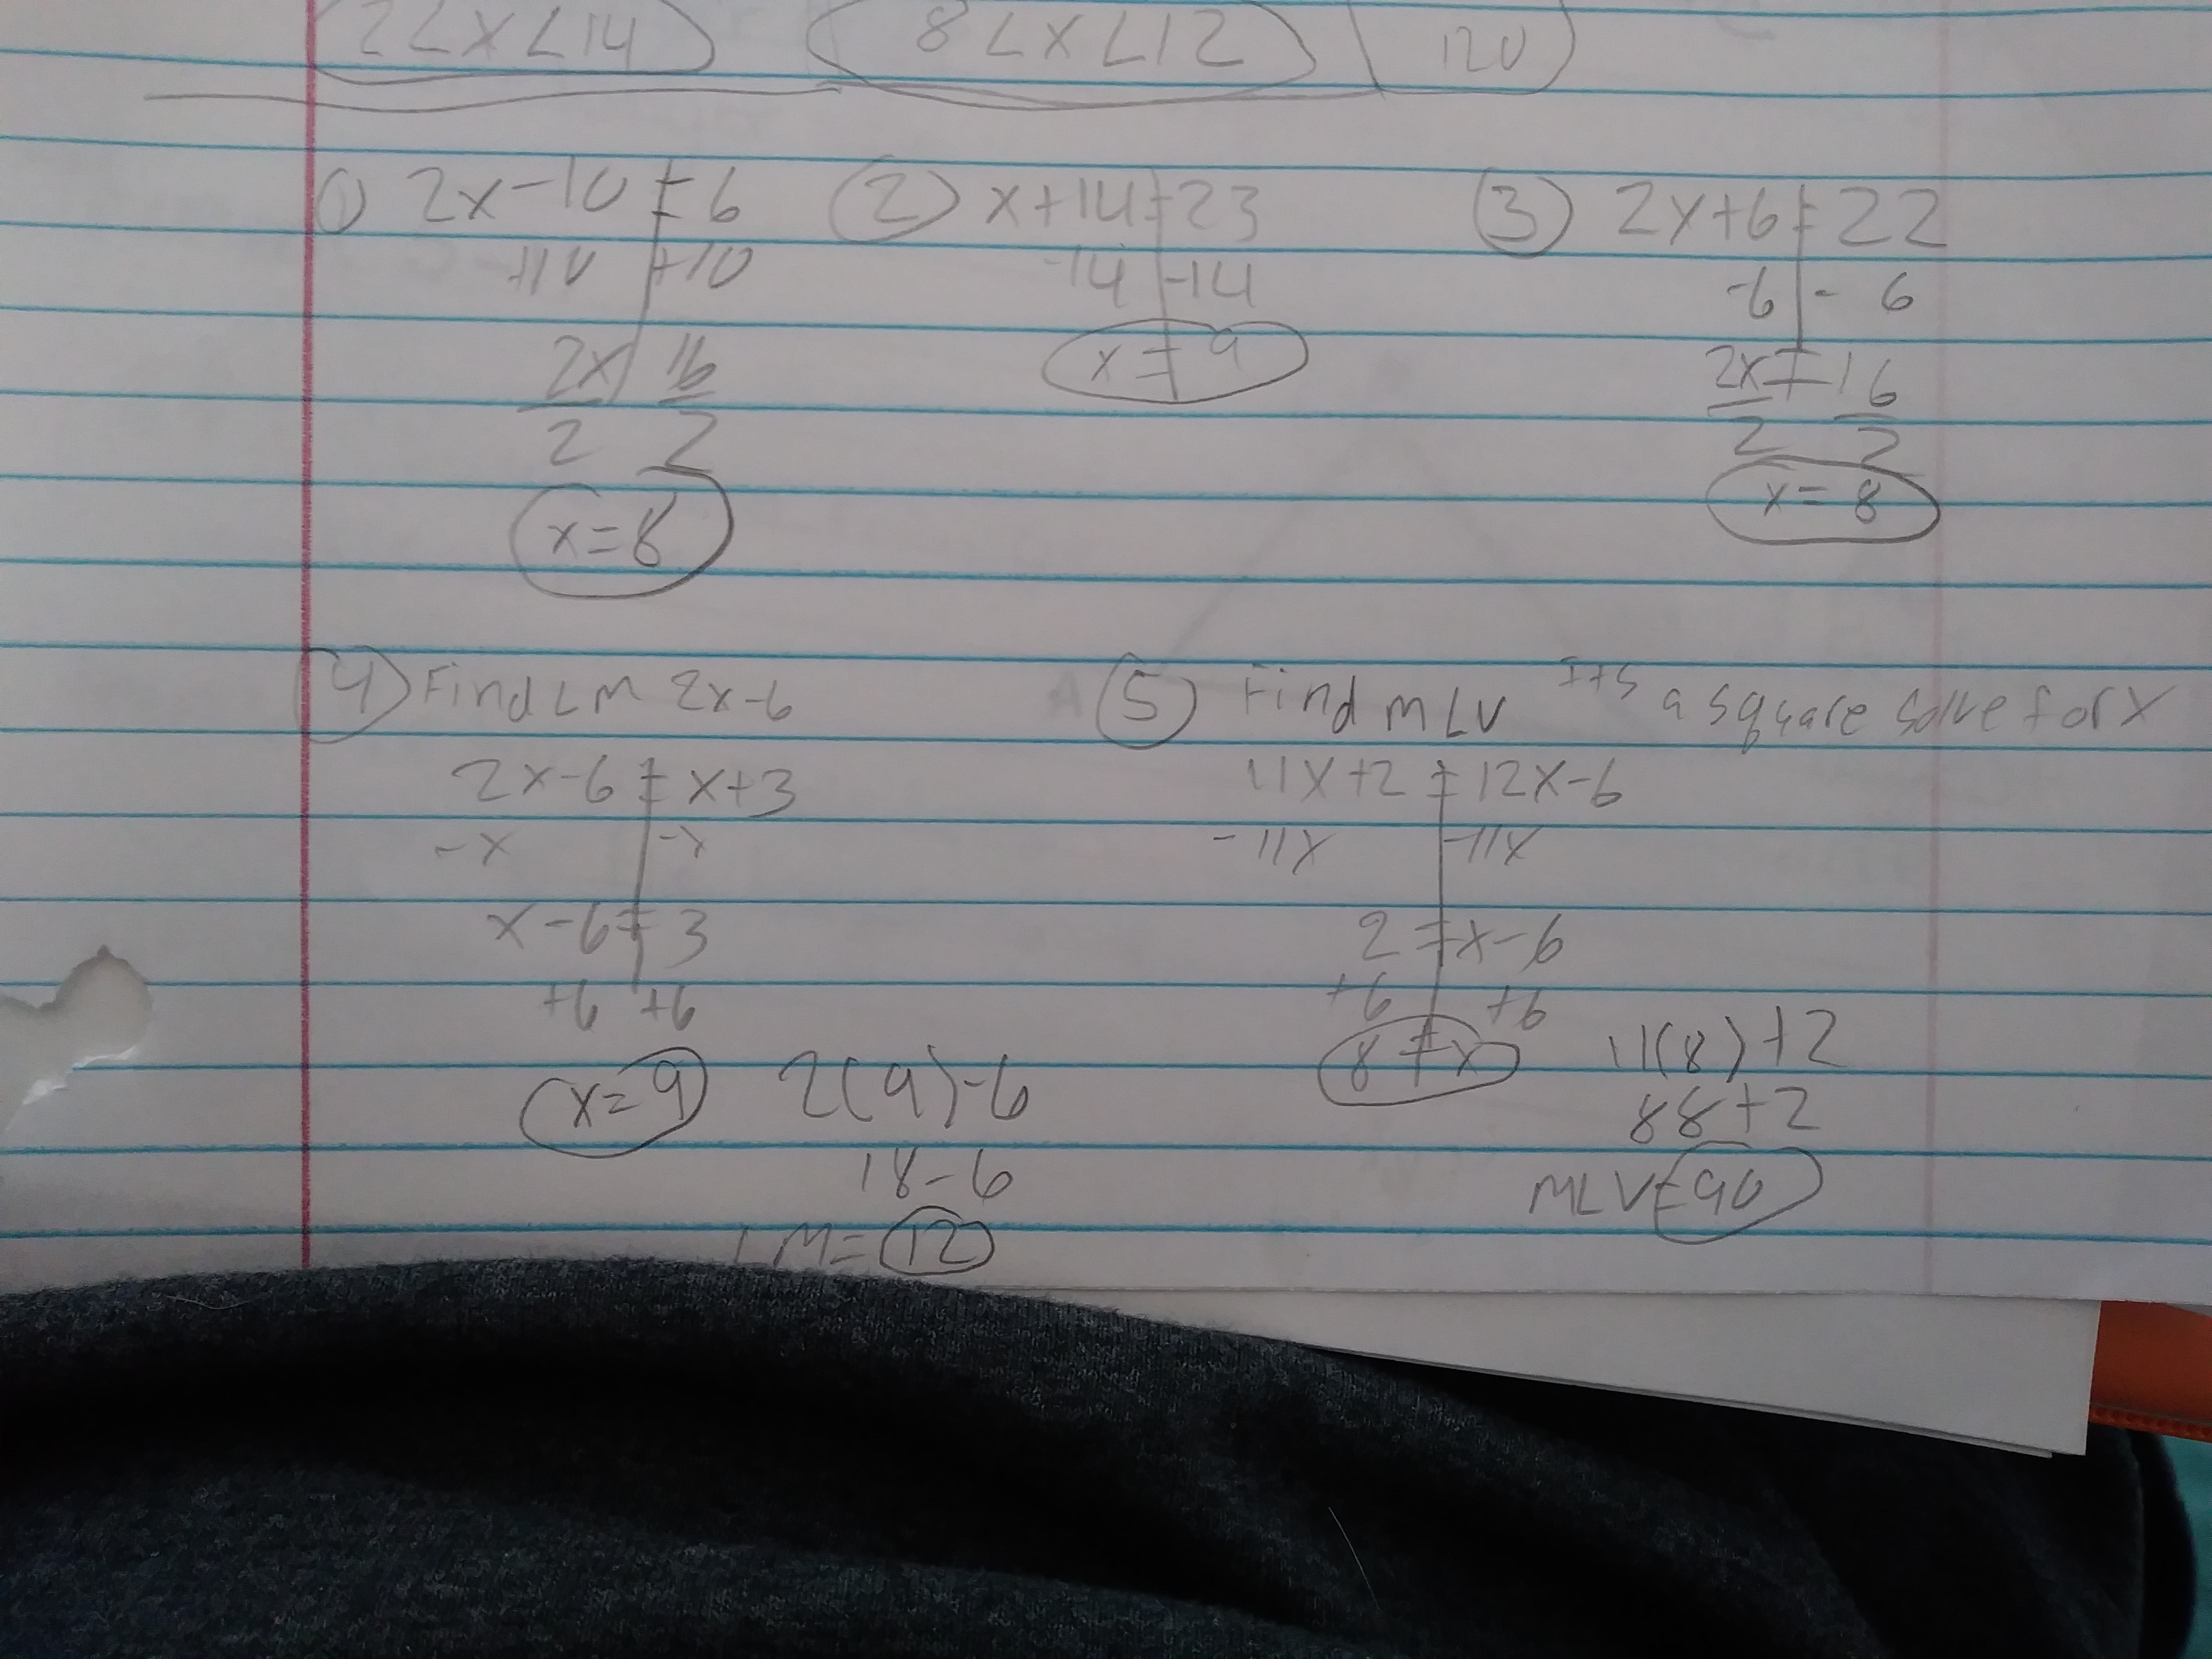 2<x<14 8<x<12 120
① 2x-10=6
+10 +10
2x 16
2 2
x=8
② x+14=23
-14 -14
x=9
③ 2x+6=22
-6 - 6
2x=16
2 2
x=8
④ Find LM 2x-6
2x-6=x+3
-x -x
x-6=3
+6 +6
x=9
2(9)-6
18-6
LM=12
⑤ Find m∠V Its a square solve for x
11x+2=12x-6
-11x -11x
2=x-6
+6 +6
8=x
11(8)+2
88+2
m∠V=90